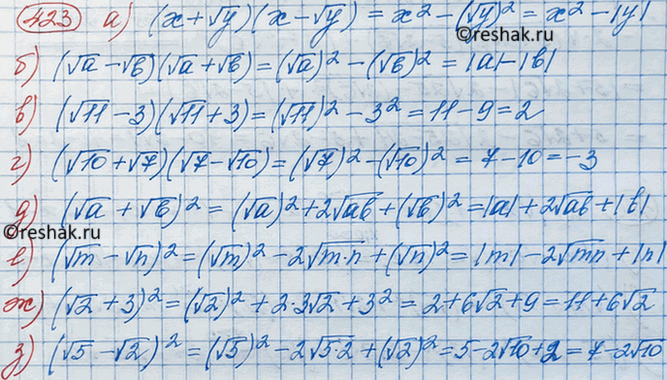 423 а) (x+√y)(x-√y) = x² - (√y)² = x² - |y|
©reshak.ru
б) (√a - √b)(√a + √b) = (√a)² - (√b)² = |a| - |b|
в) (√11 - 3)(√11 + 3) = (√11)² - 3² = 11 - 9 = 2
г) (√10 + √7)(√7 - √10) = (√7)² - (√10)² = 7 - 10 = -3
д) (√a + √b)² = (√a)² + 2√ab + (√b)² = |a| + 2√ab + |b|
©reshak.ru
е) (√m - √n)² = (√m)² - 2√m·n + (√n)² = |m| - 2√mn + |n|
ж) (√2 + 3)² = (√2)² + 2·3√2 + 3² = 2 + 6√2 + 9 = 11 + 6√2
©reshak.ru
з) (√5 - √2)² = (√5)² - 2√5·2 + (√2)² = 5 - 2√10 + 2 = 7 - 2√10